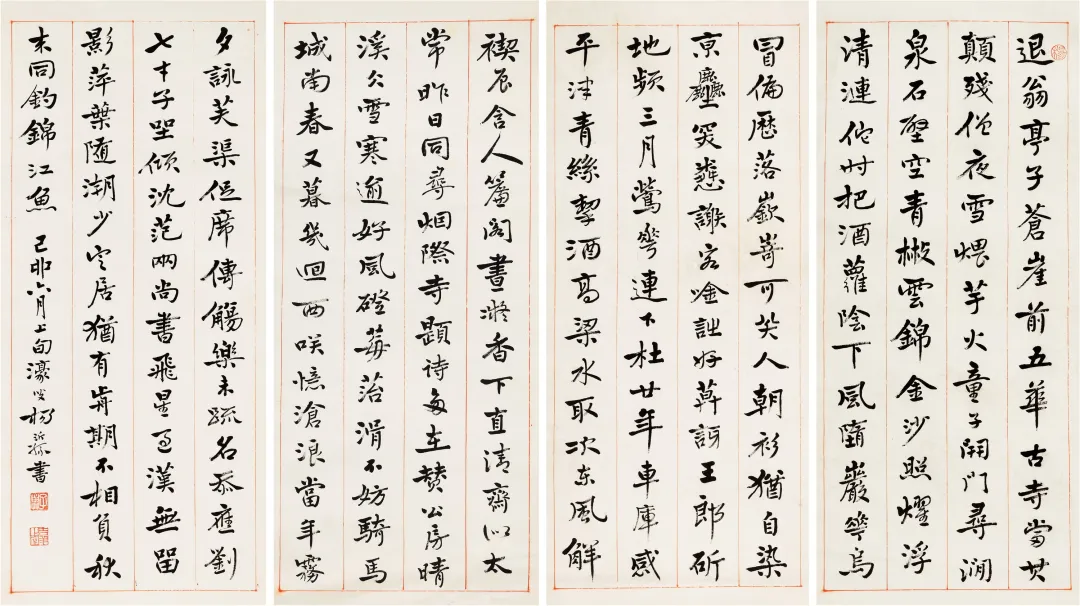 退翁亭子蒼崖前五華古寺當其
顛殘僧夜雪煨芋火童子開門尋澗
泉石壁空青雲錦金沙照燿浮
清漣佗时把酒蘿陰下風墮巖花烏
冒偏歷落嶔崎可笑人朝衫猶自染
京塵笑謝客唫詩好莫訝王郎斫
地頻三月鶯花連下杜廿年車庫感
平津青絲挈酒高梁水取次东風解
禊辰舍人簾閣晝凝香下直清齋似太
常昨日同尋烟際寺題詩多在贊公房晴
溪公雪寒逾好風磴莓苔滑不妨騎馬
城南春又暮幾迴西咲憶滄浪當年霧
夕詠芙渠促席傳觴樂未疏名忝應劉
七才子望傾沈范兩尚書飛星過漢無留
影萍葉随潮少定居猶有歲期不相負秋
来同釣錦江魚 己卯六月上旬濠叟楊沂孫書